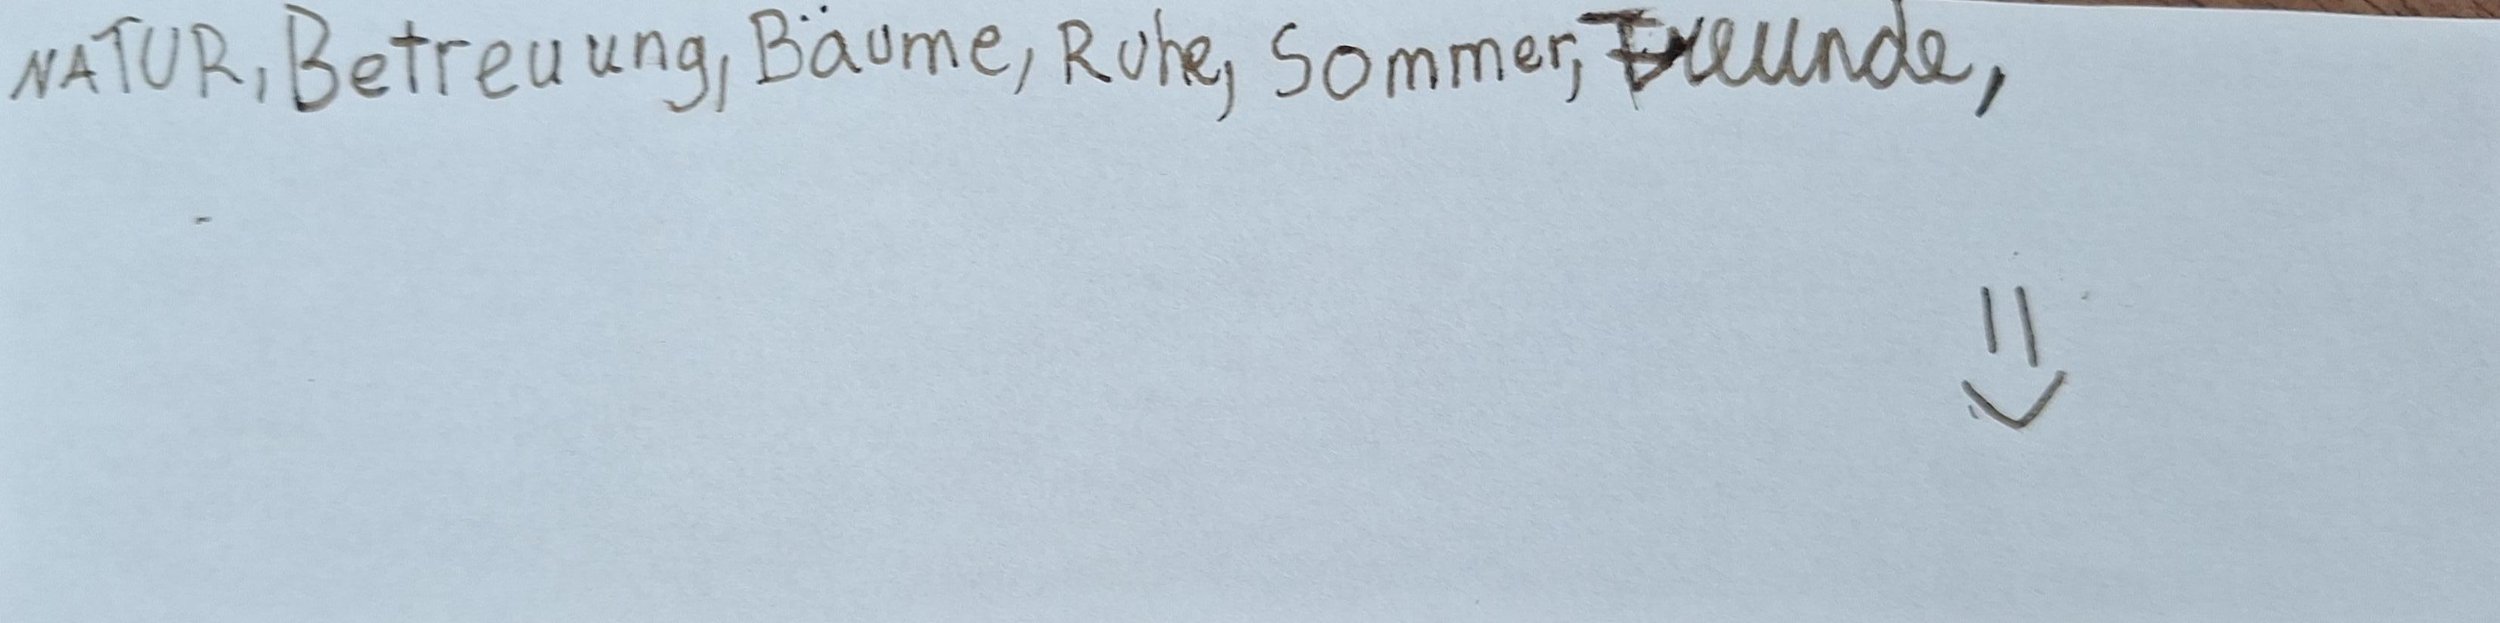 NATUR, Betreuung, Bäume, Ruhe, Sommer, Freunde,